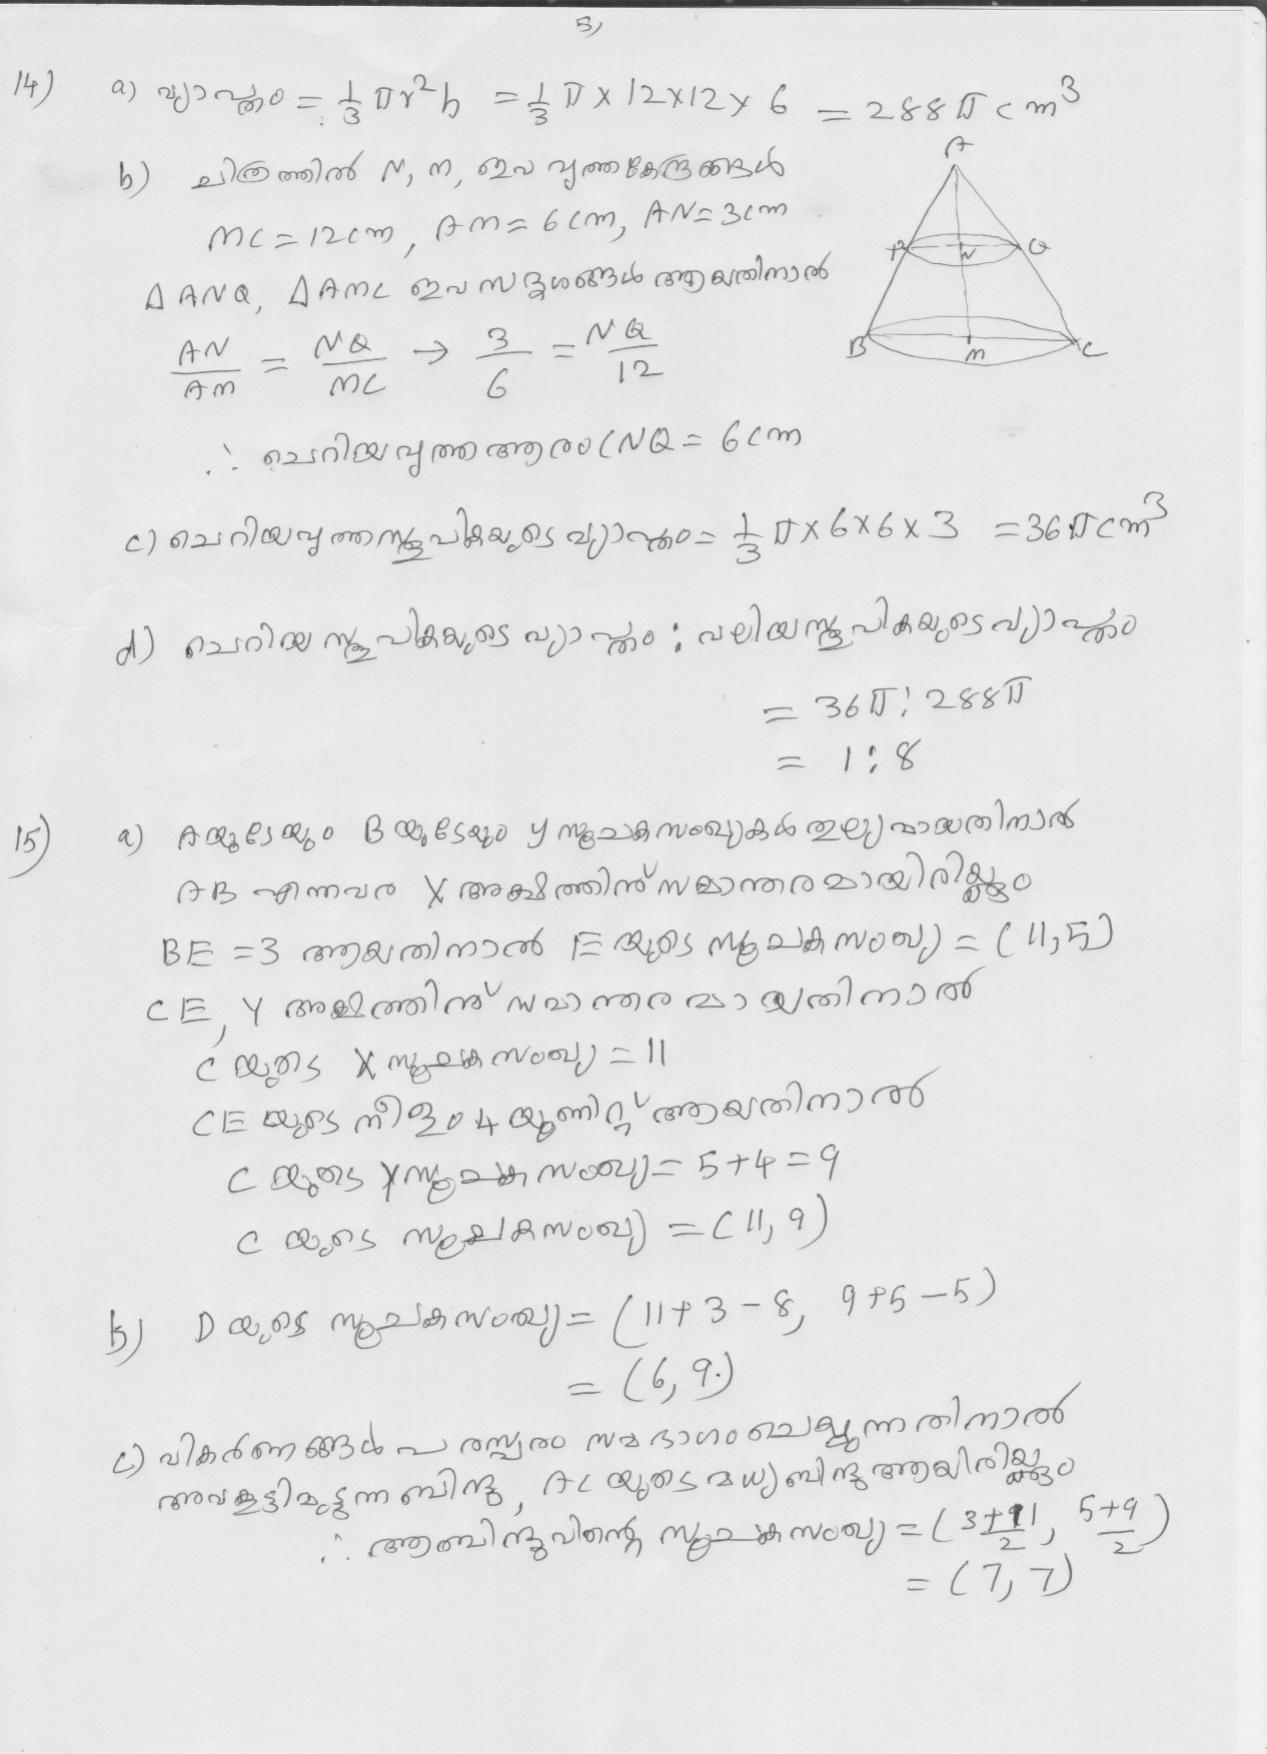 5)
14) a) വ്യാപ്തം = 1/3 πr²h = 1/3 π × 12×12× 6 = 288π cm³
b) ചിത്രത്തിൽ N, M, ഇവ വൃത്തകേന്ദ്രങ്ങൾ
MC = 12cm, AM = 6cm, AN = 3cm
Δ ANQ, Δ AMC ഇവ സദൃശങ്ങൾ ആയതിനാൽ
AN/AM = NQ/MC → 3/6 = NQ/12
∴ ചെറിയ വൃത്ത ആരം (NQ = 6cm
A
P N Q
B M C
c) ചെറിയ വൃത്തസ്തൂപികയുടെ വ്യാപ്തം = 1/3 π × 6 × 6 × 3 = 36π cm³
d) ചെറിയ സ്തൂപികയുടെ വ്യാപ്തം : വലിയ സ്തൂപികയുടെ വ്യാപ്തം
= 36π : 288π
= 1 : 8
15) a) A യുടേയും B യുടേയും y സൂചകസംഖ്യകൾ തുല്യമായതിനാൽ
AB എന്നവര X അക്ഷത്തിന് സമാന്തരമായിരിയ്ക്കും
BE = 3 ആയതിനാൽ E യുടെ സൂചകസംഖ്യ = (11, 5)
CE, Y അക്ഷത്തിന് സമാന്തരമായതിനാൽ
C യുടെ X സൂചകസംഖ്യ = 11
CE യുടെ നീളം 4 യൂണിറ്റ് ആയതിനാൽ
C യുടെ Y സൂചകസംഖ്യ = 5+4 = 9
C യുടെ സൂചകസംഖ്യ = (11, 9)
b) D യുടെ സൂചകസംഖ്യ = (11+3-8, 9+5-5)
= (6, 9)
c) വികർണങ്ങൾ പരസ്പരം സമഭാഗം ചെയ്യുന്നതിനാൽ
അവ കൂട്ടിമുട്ടുന്ന ബിന്ദു, AC യുടെ മധ്യബിന്ദു ആയിരിയ്ക്കും
∴ ആ ബിന്ദുവിന്റെ സൂചകസംഖ്യ = (3+11/2, 5+9/2)
= (7, 7)